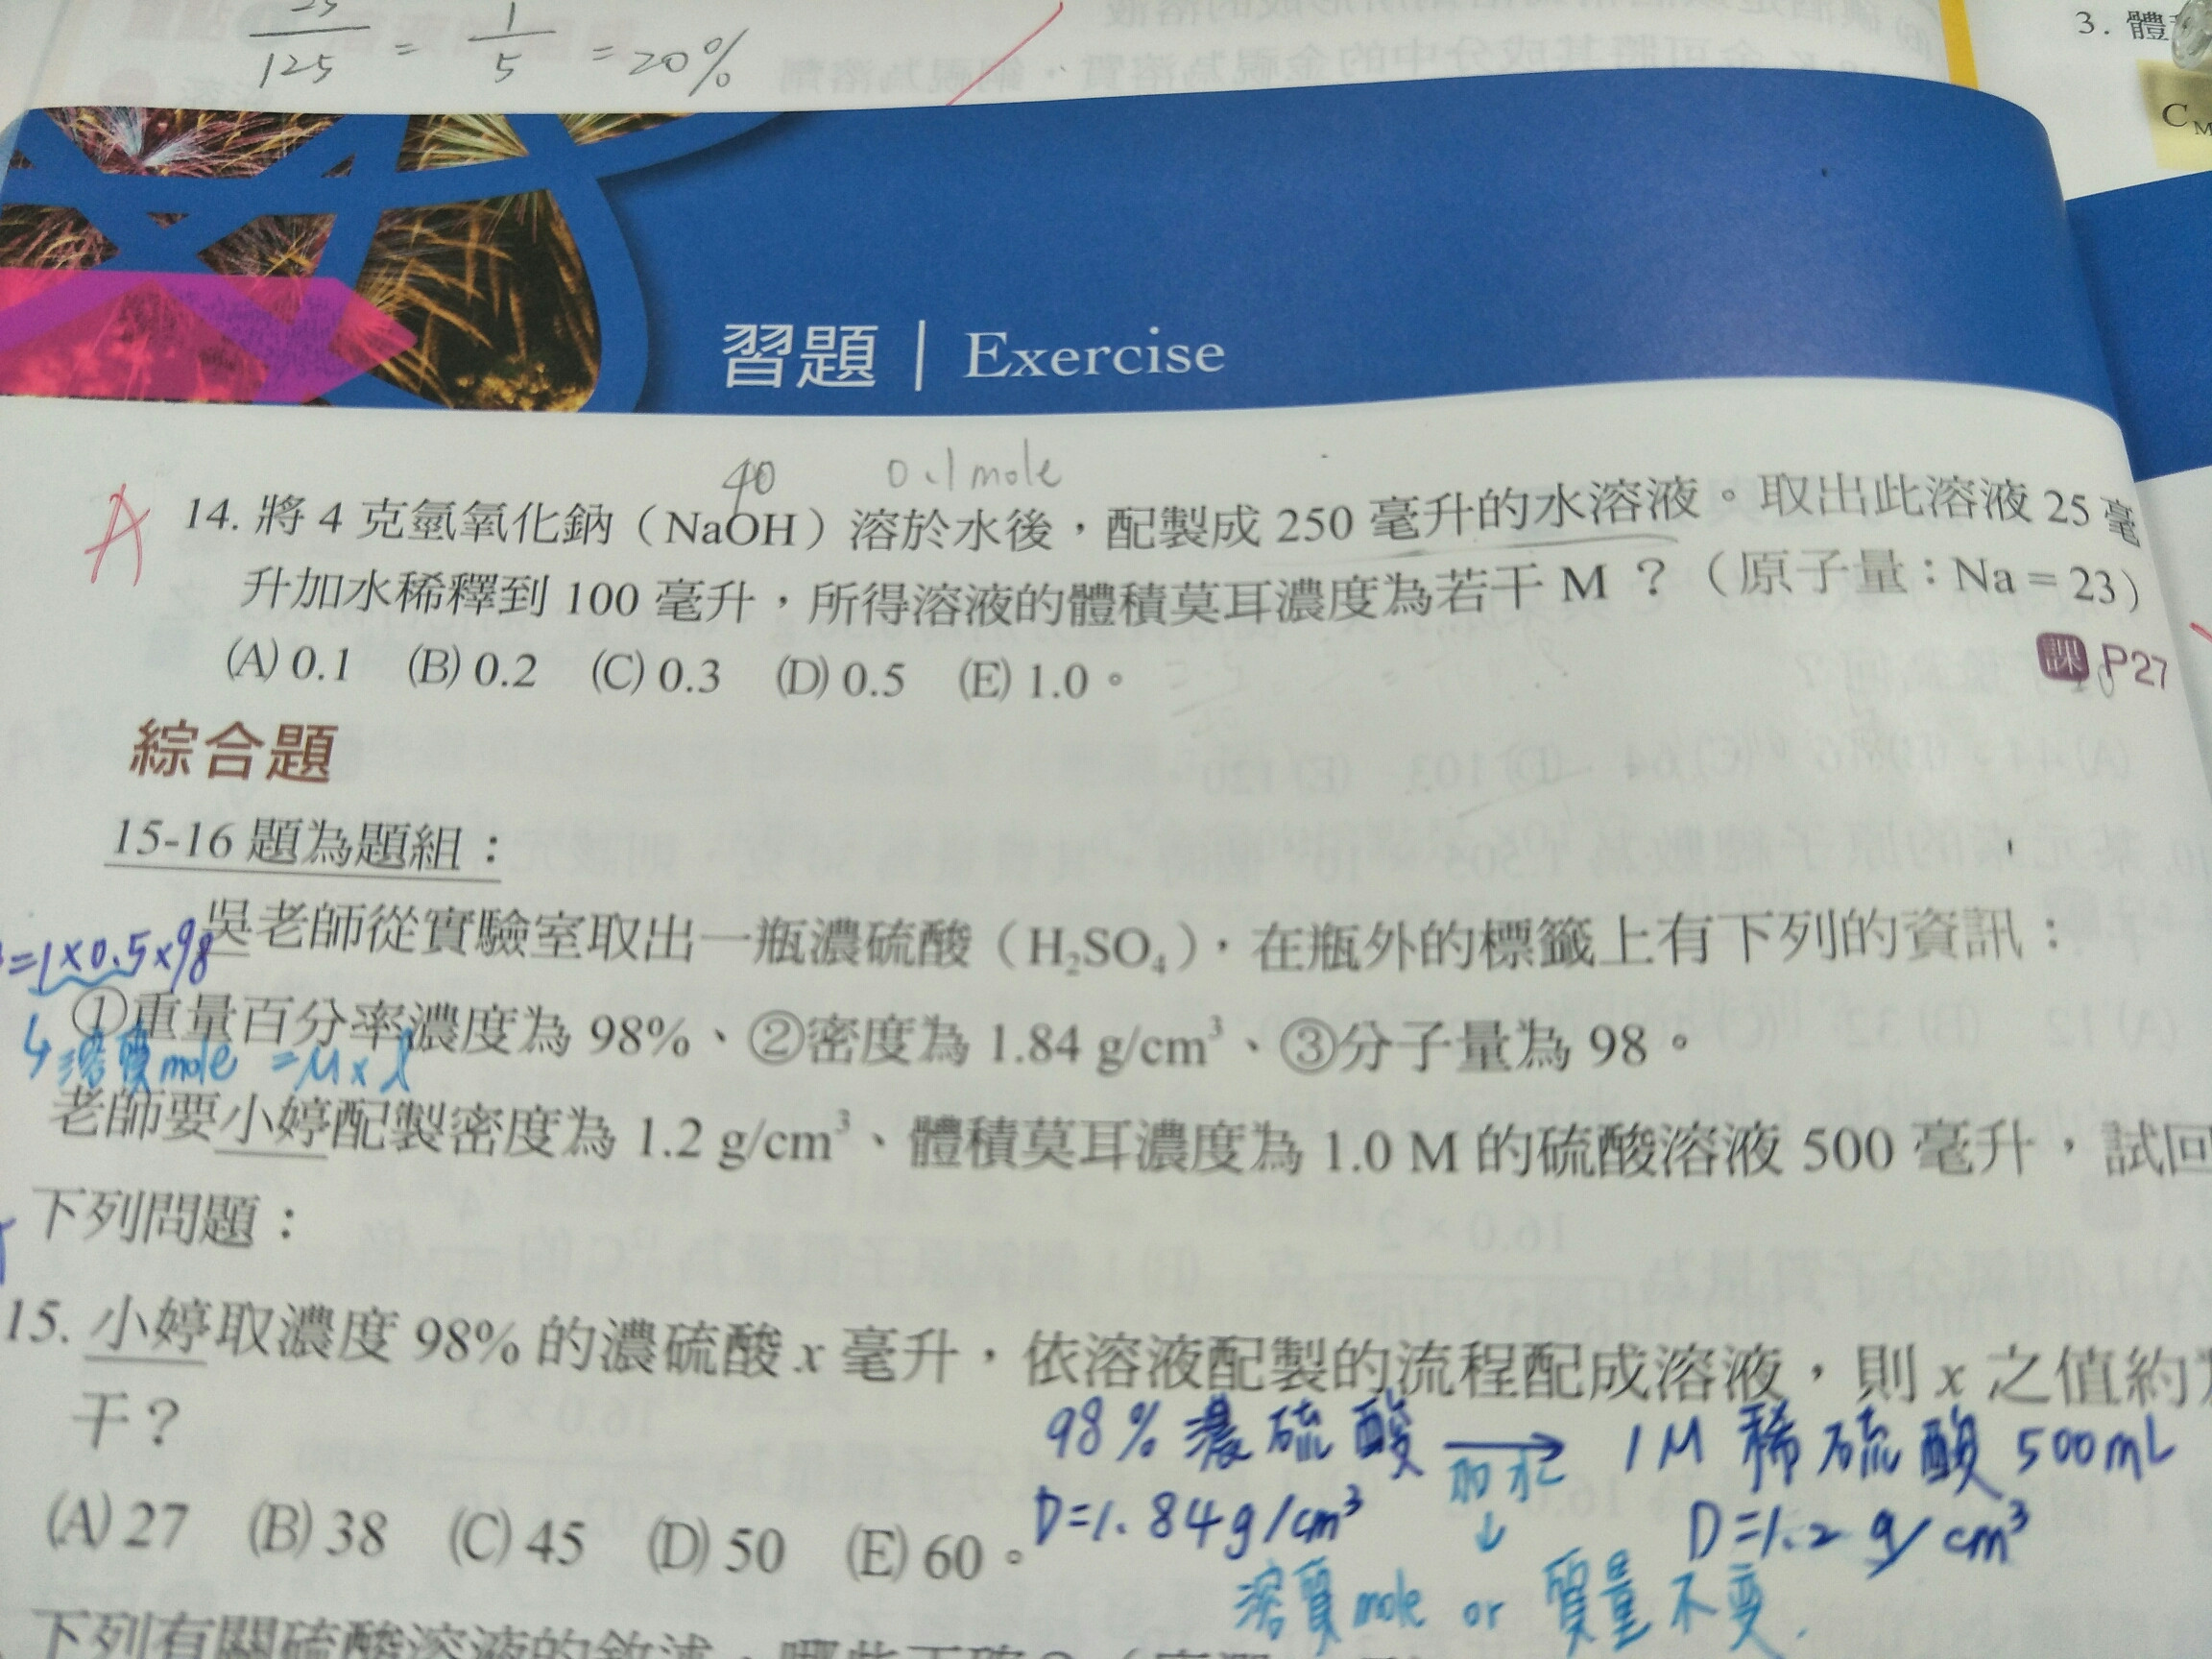 125 = 1/5 = 20%
3. 體
習題 | Exercise
40 0.1 mole
A
14. 將 4 克氫氧化鈉（NaOH）溶於水後，配製成 250 毫升的水溶液。取出此溶液 25 毫
升加水稀釋到 100 毫升，所得溶液的體積莫耳濃度為若干 M？（原子量：Na = 23）
(A) 0.1 (B) 0.2 (C) 0.3 (D) 0.5 (E) 1.0。
課 P27
綜合題
15-16 題為題組：
吳老師從實驗室取出一瓶濃硫酸（H₂SO₄），在瓶外的標籤上有下列的資訊：
=1×0.5×98
①重量百分率濃度為 98%、②密度為 1.84 g/cm³、③分子量為 98。
↳溶質mole = M×l
老師要小婷配製密度為 1.2 g/cm³、體積莫耳濃度為 1.0 M 的硫酸溶液 500 毫升，試回
下列問題：
15. 小婷取濃度 98% 的濃硫酸 x 毫升，依溶液配製的流程配成溶液，則 x 之值約
干？
98% 濃硫酸 → 1M 稀硫酸 500mL
加水
D=1.84g/cm³ ↓ D=1.2 g/cm³
(A) 27 (B) 38 (C) 45 (D) 50 (E) 60。
溶質mole or 質量不變.
下列有關硫酸溶液的敘述，哪些正確？